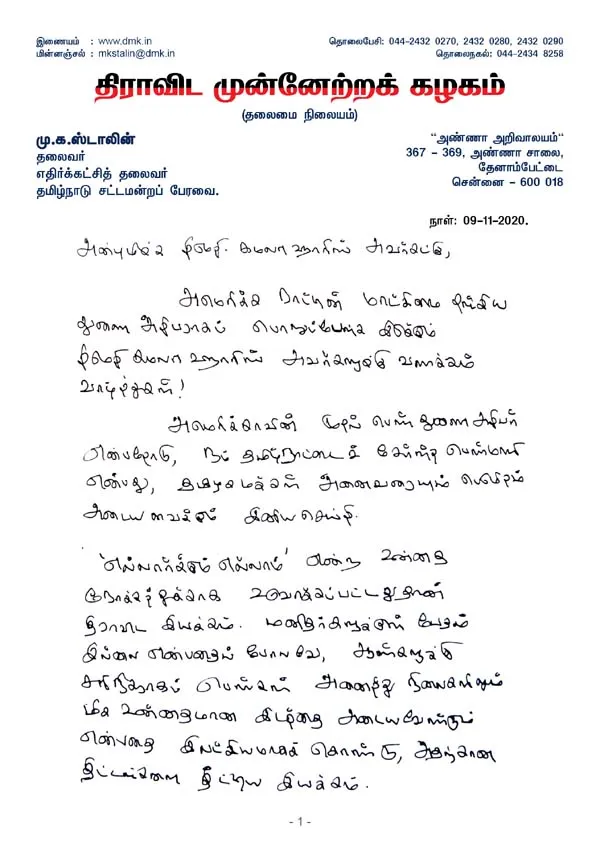 இணையம் : www.dmk.in
மின்னஞ்சல் : mkstalin@dmk.in
தொலைபேசி: 044-2432 0270, 2432 0280, 2432 0290
தொலைநகல்: 044-2434 8258
திராவிட முன்னேற்றக் கழகம்
(தலைமை நிலையம்)
மு.க.ஸ்டாலின்
தலைவர்
எதிர்க்கட்சித் தலைவர்
தமிழ்நாடு சட்டமன்றப் பேரவை.
“அண்ணா அறிவாலயம்“
367 – 369, அண்ணா சாலை,
தேனாம்பேட்டை
சென்னை – 600 018
நாள்: 09-11-2020.
அன்புமிக்க திருமதி. கமலா ஹாரிஸ் அவர்கட்கு,
அமெரிக்க நாட்டின் மாட்சிமை
துணை அதிபராகப் பொறுப்பேற்க இருக்கும்
திருமதி கமலா ஹாரிஸ் அவர்களுக்கு வணக்கம்
வாழ்த்துகள்!
அமெரிக்காவின் முதல் பெண் துணை அதிபர்
என்பதோடு, நம் தமிழ்நாட்டைச் சேர்ந்த பெண்மணி
என்பது, தமிழக மக்கள் அனைவரையும் பெருமிதம்
அடைய வைக்கும் இனிய செய்தி.
'எல்லார்க்கும் எல்லாம்' என்ற உன்னத
நோக்கத்துக்காக உருவாக்கப்பட்டதுதான்
திராவிட இயக்கம். மனிதர்களுக்குள் பேதம்
இல்லை என்பதைப் போலவே, ஆண்களுக்குச்
சரிநிகராகப் பெண்கள் அனைத்து நிலைகளிலும்
மிக உன்னதமான இடத்தை அடையவேண்டும்
என்பதை இலட்சியமாகக் கொண்டு, அதற்கான
திட்டங்களை தீட்டிய இயக்கம்.
- 1 -